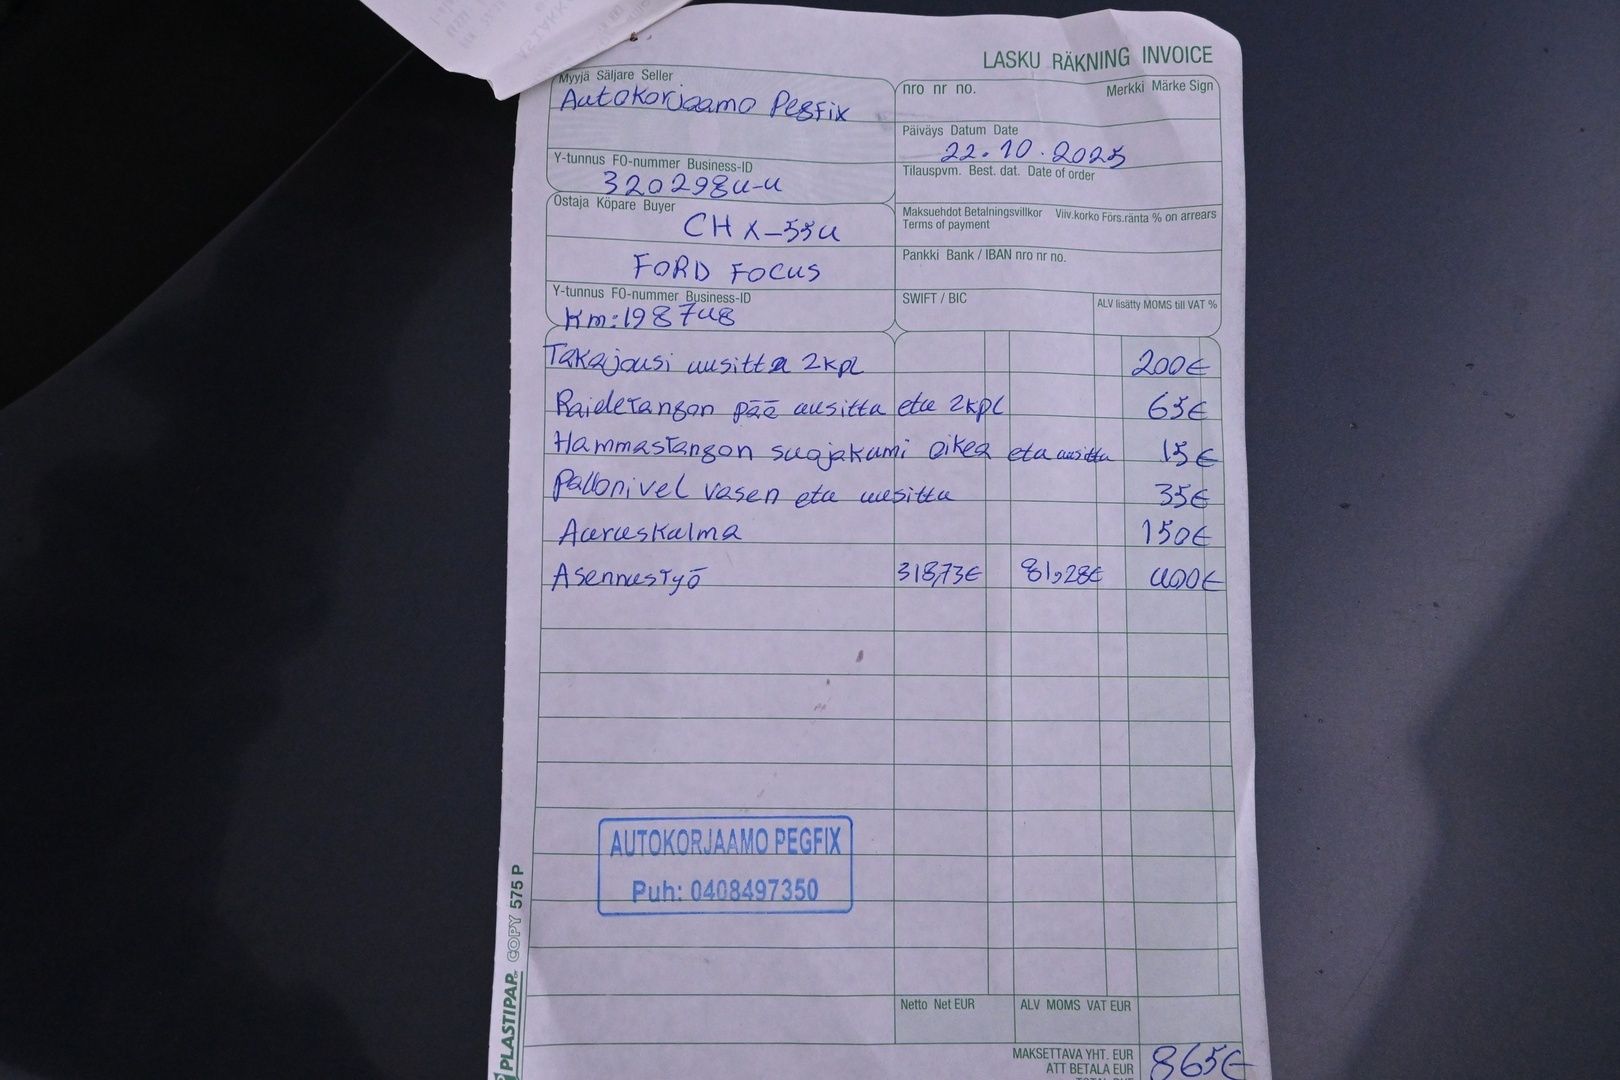 LASKU RÄKNING INVOICE
Myyjä Säljare Seller
Autokorjaamo Pegfix
nro nr no.
Merkki Märke Sign
Päiväys Datum Date
22.10.2025
Y-tunnus FO-nummer Business-ID
3202984-4
Tilauspvm. Best. dat. Date of order
Ostaja Köpare Buyer
CHX-554
FORD FOCUS
Maksuehdot Betalningsvillkor
Terms of payment
Viiv.korko Förs.ränta % on arrears
Pankki Bank / IBAN nro nr no.
Y-tunnus FO-nummer Business-ID
Km:198748
SWIFT / BIC
ALV lisätty MOMS till VAT %
Takajousi uusitta 2kpl 200€
Raidetangon pää uusitta eta 2kpl 65€
Hammastangon suojakumi oikea eta uusitta 15€
Pallonivel vasen eta uusitta 35€
Auruskulma 150€
Asennustyö 318,73€ 81,28€ 400€
AUTOKORJAAMO PEGFIX
Puh: 0408497350
PLASTIPAP COPY 575 P
Netto Net EUR
ALV MOMS VAT EUR
MAKSETTAVA YHT. EUR
ATT BETALA EUR
865€